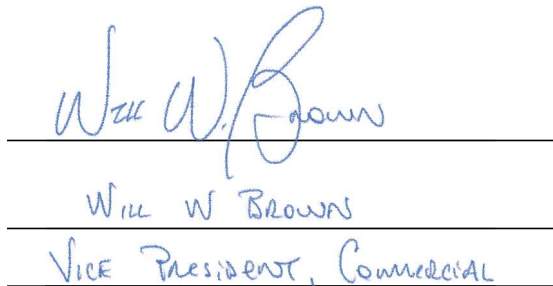 Will W. Brown
Will W Brown
Vice President, Commercial